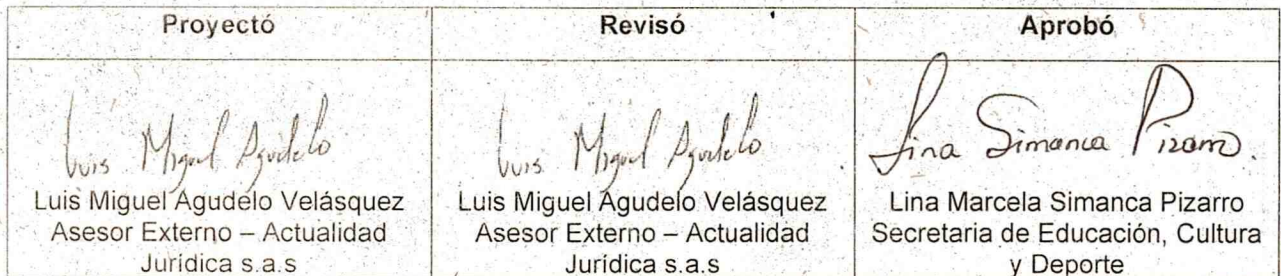 Proyectó
Revisó
Aprobó
Luis Miguel Agudelo
Luis Miguel Agudelo Velásquez
Asesor Externo – Actualidad
Jurídica s.a.s
Luis Miguel Agudelo
Luis Miguel Agudelo Velásquez
Asesor Externo – Actualidad
Jurídica s.a.s
Lina Simanca Pizarro.
Lina Marcela Simanca Pizarro
Secretaria de Educación, Cultura
y Deporte